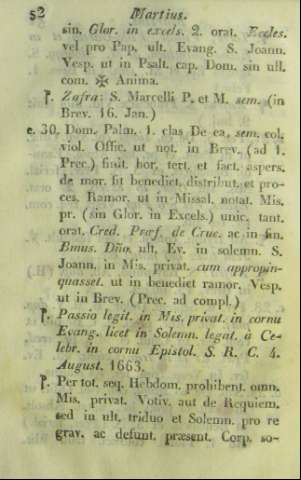 52 Martius.
sin. Glor. in excels. 2. orat. Eccles.
vel pro Pap. ult. Evang. S. Joann.
Vesp. ut in Psalt. cap. Dom. sin ull.
com. ✠ Anima.
℣. Zafra: S. Marcelli P. et M. sem. (in
Brev. 16. Jan.)
e. 30. Dom. Palm. 1. clas De ea, sem. col.
viol. Offic. ut not. in Brev. (ad 1.
Prec.) finit. hor. tert. et fact. aspers.
de mor. fit benedict. distribut. et pro-
ces. Ramor. ut in Missal. notat. Mis.
pr. (sin Glor. in Excels.) unic. tant.
orat. Cred. Præf. de Cruc. ac in fin.
Bmus. Dño. ult. Ev. in solemn. S.
Joann. in Mis. privat. cum appropin-
quasset. ut in benedict ramor. Vesp.
ut in Brev. (Prec. ad compl.)
℣. Passio legit. in Mis. privat. in cornu
Evang. licet in Solemn. legat. à Ce-
lebr. in cornu Epistol. S. R. C. 4.
August. 1663.
℣. Per tot. seq. Hebdom. prohibent. omn.
Mis. privat. Votiv. aut de Requiem.
sed in ult. triduo et Solemn. pro re
grav. ac defunt. præsent. Corp. so-